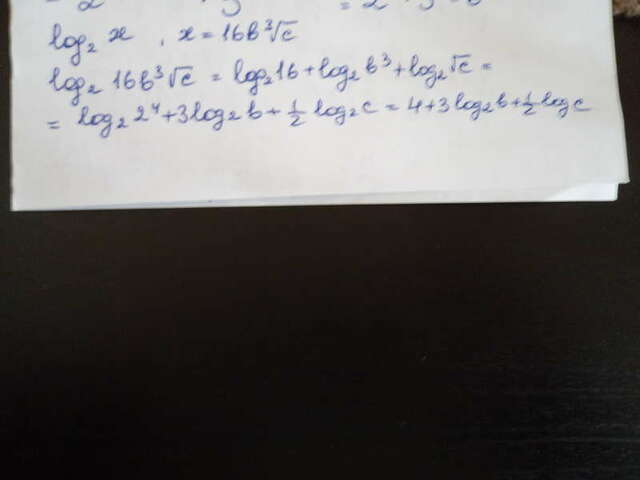 log₂ x , x = 16b³√c
log₂ 16b³√c = log₂16 + log₂b³ + log₂√c =
= log₂ 2⁴ + 3log₂b + 1/2 log₂c = 4 + 3log₂b + 1/2 log c